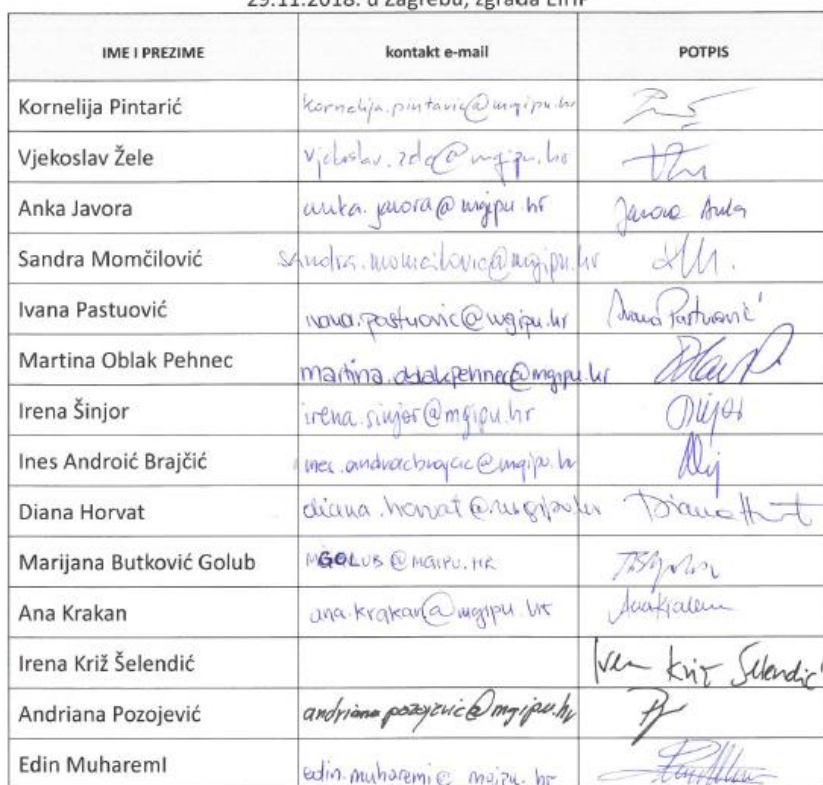 29.11.2018. u Zagrebu, zgrada EIHP
IME I PREZIME kontakt e-mail POTPIS
Kornelija Pintarić kornelija.pintaric@mgipu.hr
Vjekoslav Žele vjekoslav.zele@mgipu.hr
Anka Javora anka.javora@mgipu.hr Javora Anka
Sandra Momčilović sandra.momcilovic@mgipu.hr
Ivana Pastuović ivana.pastuovic@mgipu.hr Ivana Pastuović
Martina Oblak Pehnec martina.oblakpehnec@mgipu.hr
Irena Šinjor irena.sinjor@mgipu.hr Šinjor
Ines Androić Brajčić ines.androicbrajcic@mgipu.hr
Diana Horvat diana.horvat@mgipu.hr Diana
Marijana Butković Golub MGOLUB@MGIPU.HR
Ana Krakan ana.krakan@mgipu.hr Ana Krakan
Irena Križ Šelendić Križ Šelendić
Andriana Pozojević andriana.pozojevic@mgipu.hr
Edin MuharemI edin.muharemi@mgipu.hr